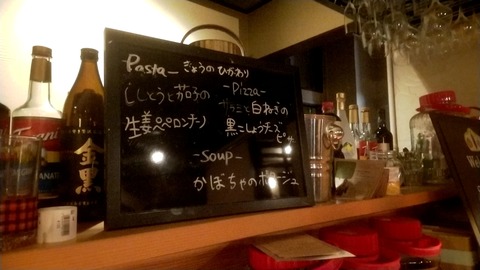 Pasta_ ぎょうのひがわり
ししとうと茄子の
生姜ペペロンチーノ
-Pizza-
サラミと白ねぎの
黒こしょうチーズ
ピザ
-Soup-
かぼちゃのポタージュ
金黒